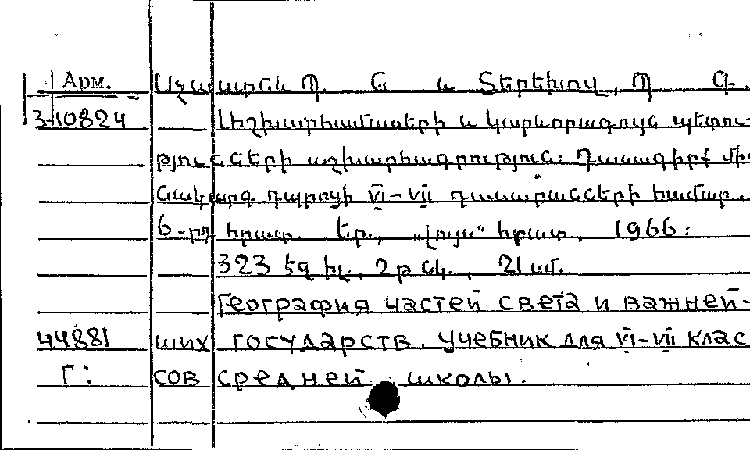 Арм. Աշատրեն Պ. Ն և Տերեխով, Պ Գ.
3-10824 Աշխարհամասերի և կարևորագույն պետու-
թյունների աշխարհագրություն: Դասագիրք մի
նակարգ դպրոցի VI-VII դասարանների համար.
6-րդ հրատ. Եր., „Լույս" հրատ, 1966:
323 էջ իլ., 2 թ նկ., 21 սմ.
География частей света и важней-
44881 ших государств. Учебник для VI-VII клас
Г: сов средней школы.